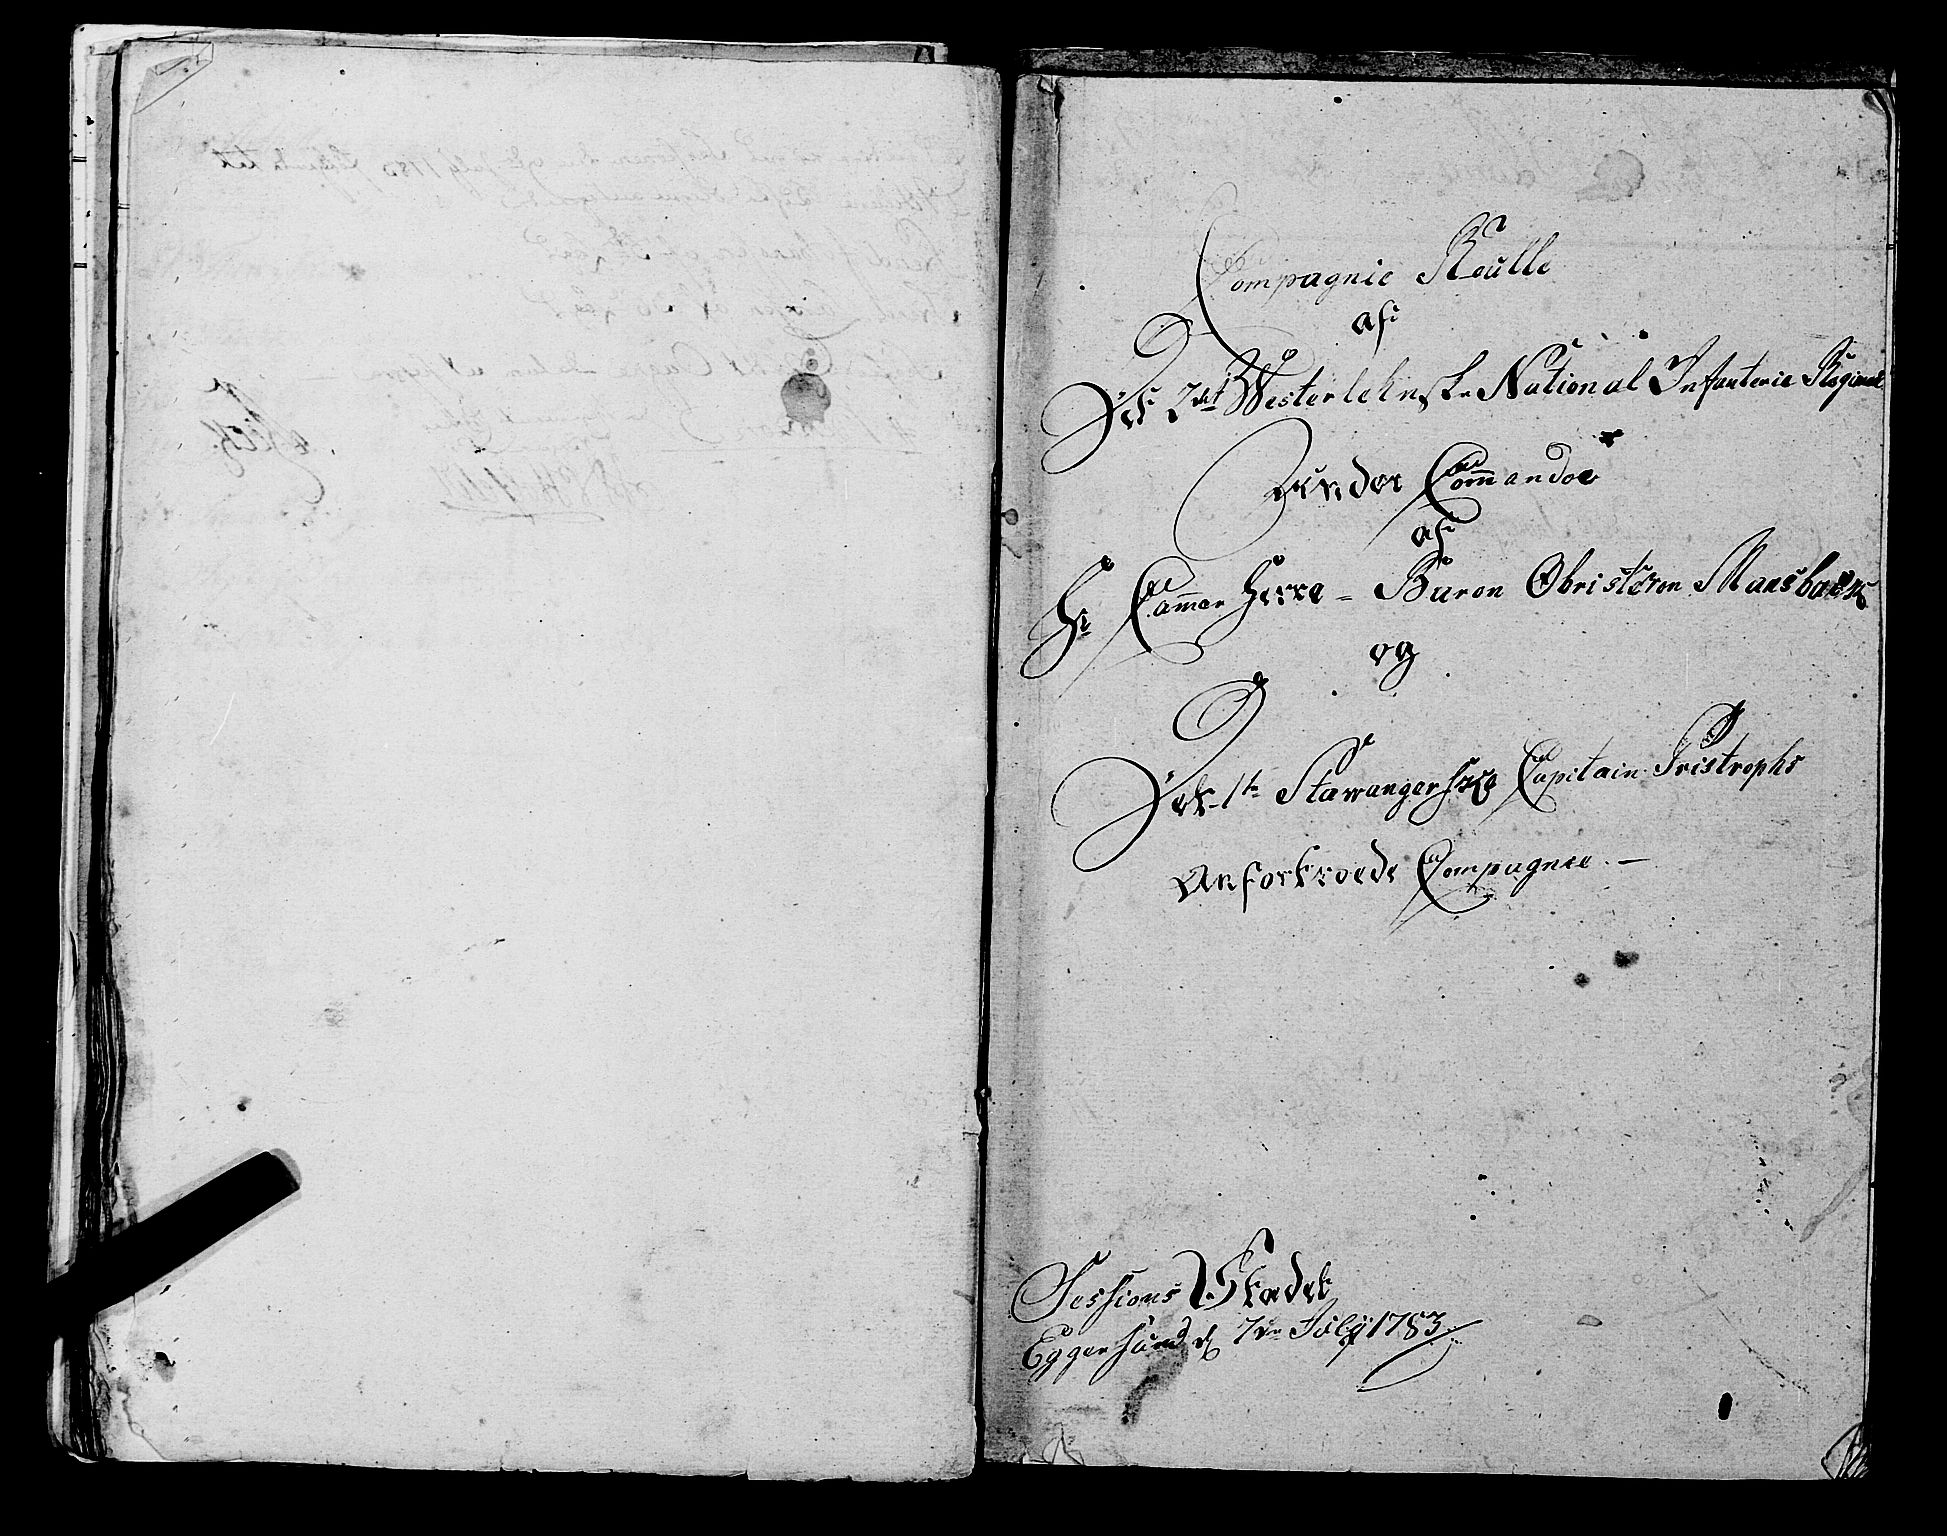 Compagnie Roulle
af
Det 2det Westerlehnske National Infanterie Regiment
Under Commandoe
af
Hr Cammer Herre = Baron Obristeren Mansback
og
Det 1te Stawangerske Capitain Tristrophs
Anfortroede Compagnie. —
Sessions Stædet
Eggersund d 7de July 1783.